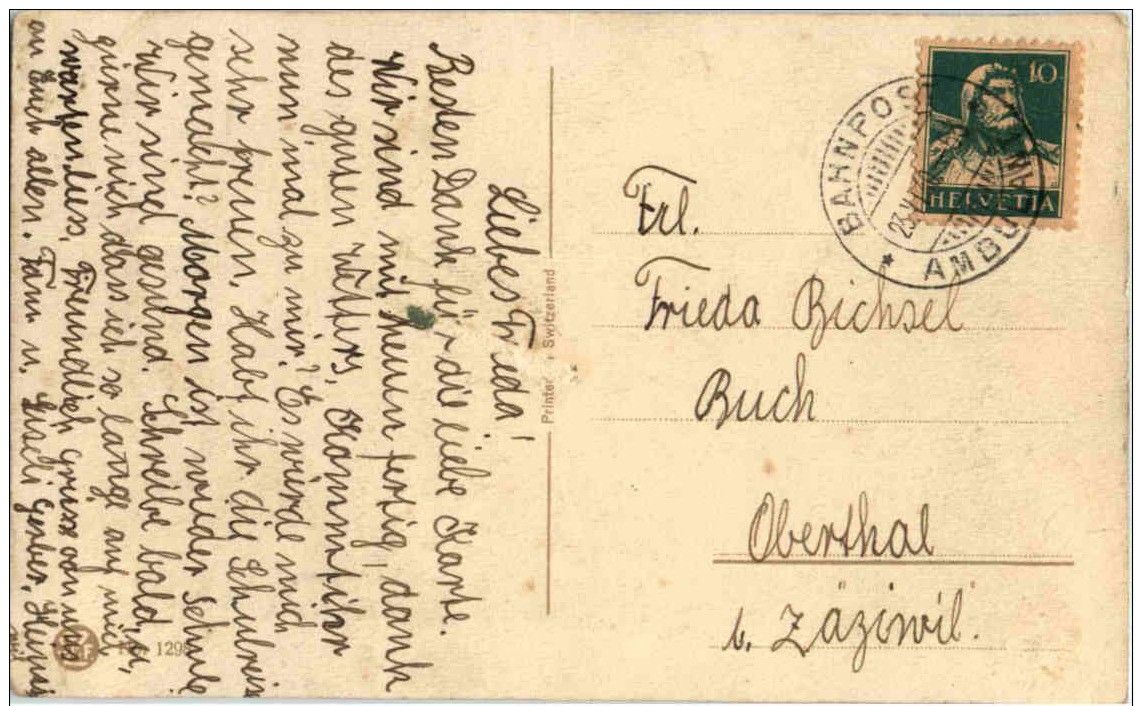 Liebes Frieda!
Besten Dank für die liebe Karte.
Wir sind mit heuen fertig, dank
des guten Wetters, Kommt ihr
nun mal zu mir? Es würde mich
sehr freuen. Habt ihr die Schulreis
gemacht? Morgen ist wieder Schule
Wir sind gesund. Schreibe bald,
zürne mich dass ich so lange auf mich
warten liess. Freundlich Grüsse von uns
an Euch allen. Fam u. Gerber,
Printed Switzerland
1298
BAHNPOST
AMBULANT
23.
10
HELVETIA
Frl.
Frieda Bichsel
Buch
Oberthal
b. Zäziwil.